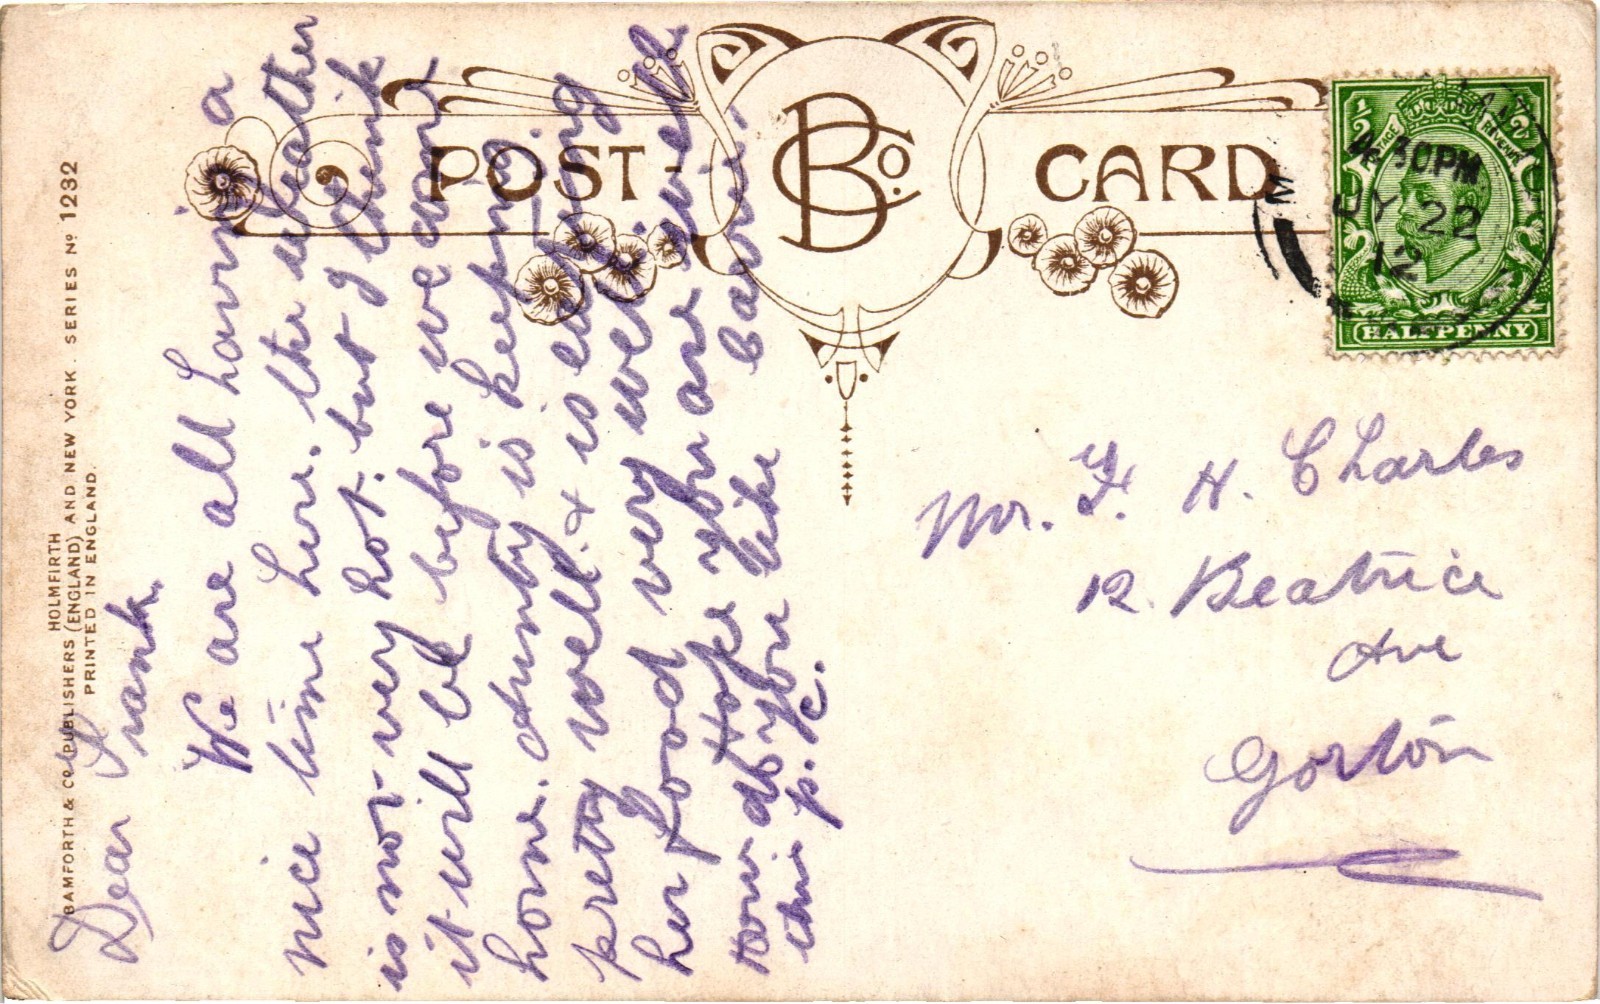 POST CARD
BCo.
BAMFORTH & CO PUBLISHERS (ENGLAND) AND NEW YORK. SERIES No 1232
HOLMFIRTH
PRINTED IN ENGLAND.
Dear Frank.
We are all having a
nice time here. the weather
is not very hot. but I think
it will be before we come
home. is keeping
pretty well. & is eating
her food very well. well
Hope you are
How do you like
this p. c.
1/2 1/2
POSTAGE REVENUE
30PM
JY 22
12
HALFPENNY
Mr. F. H. Charles
12. Beatrice
Ave
Gorton